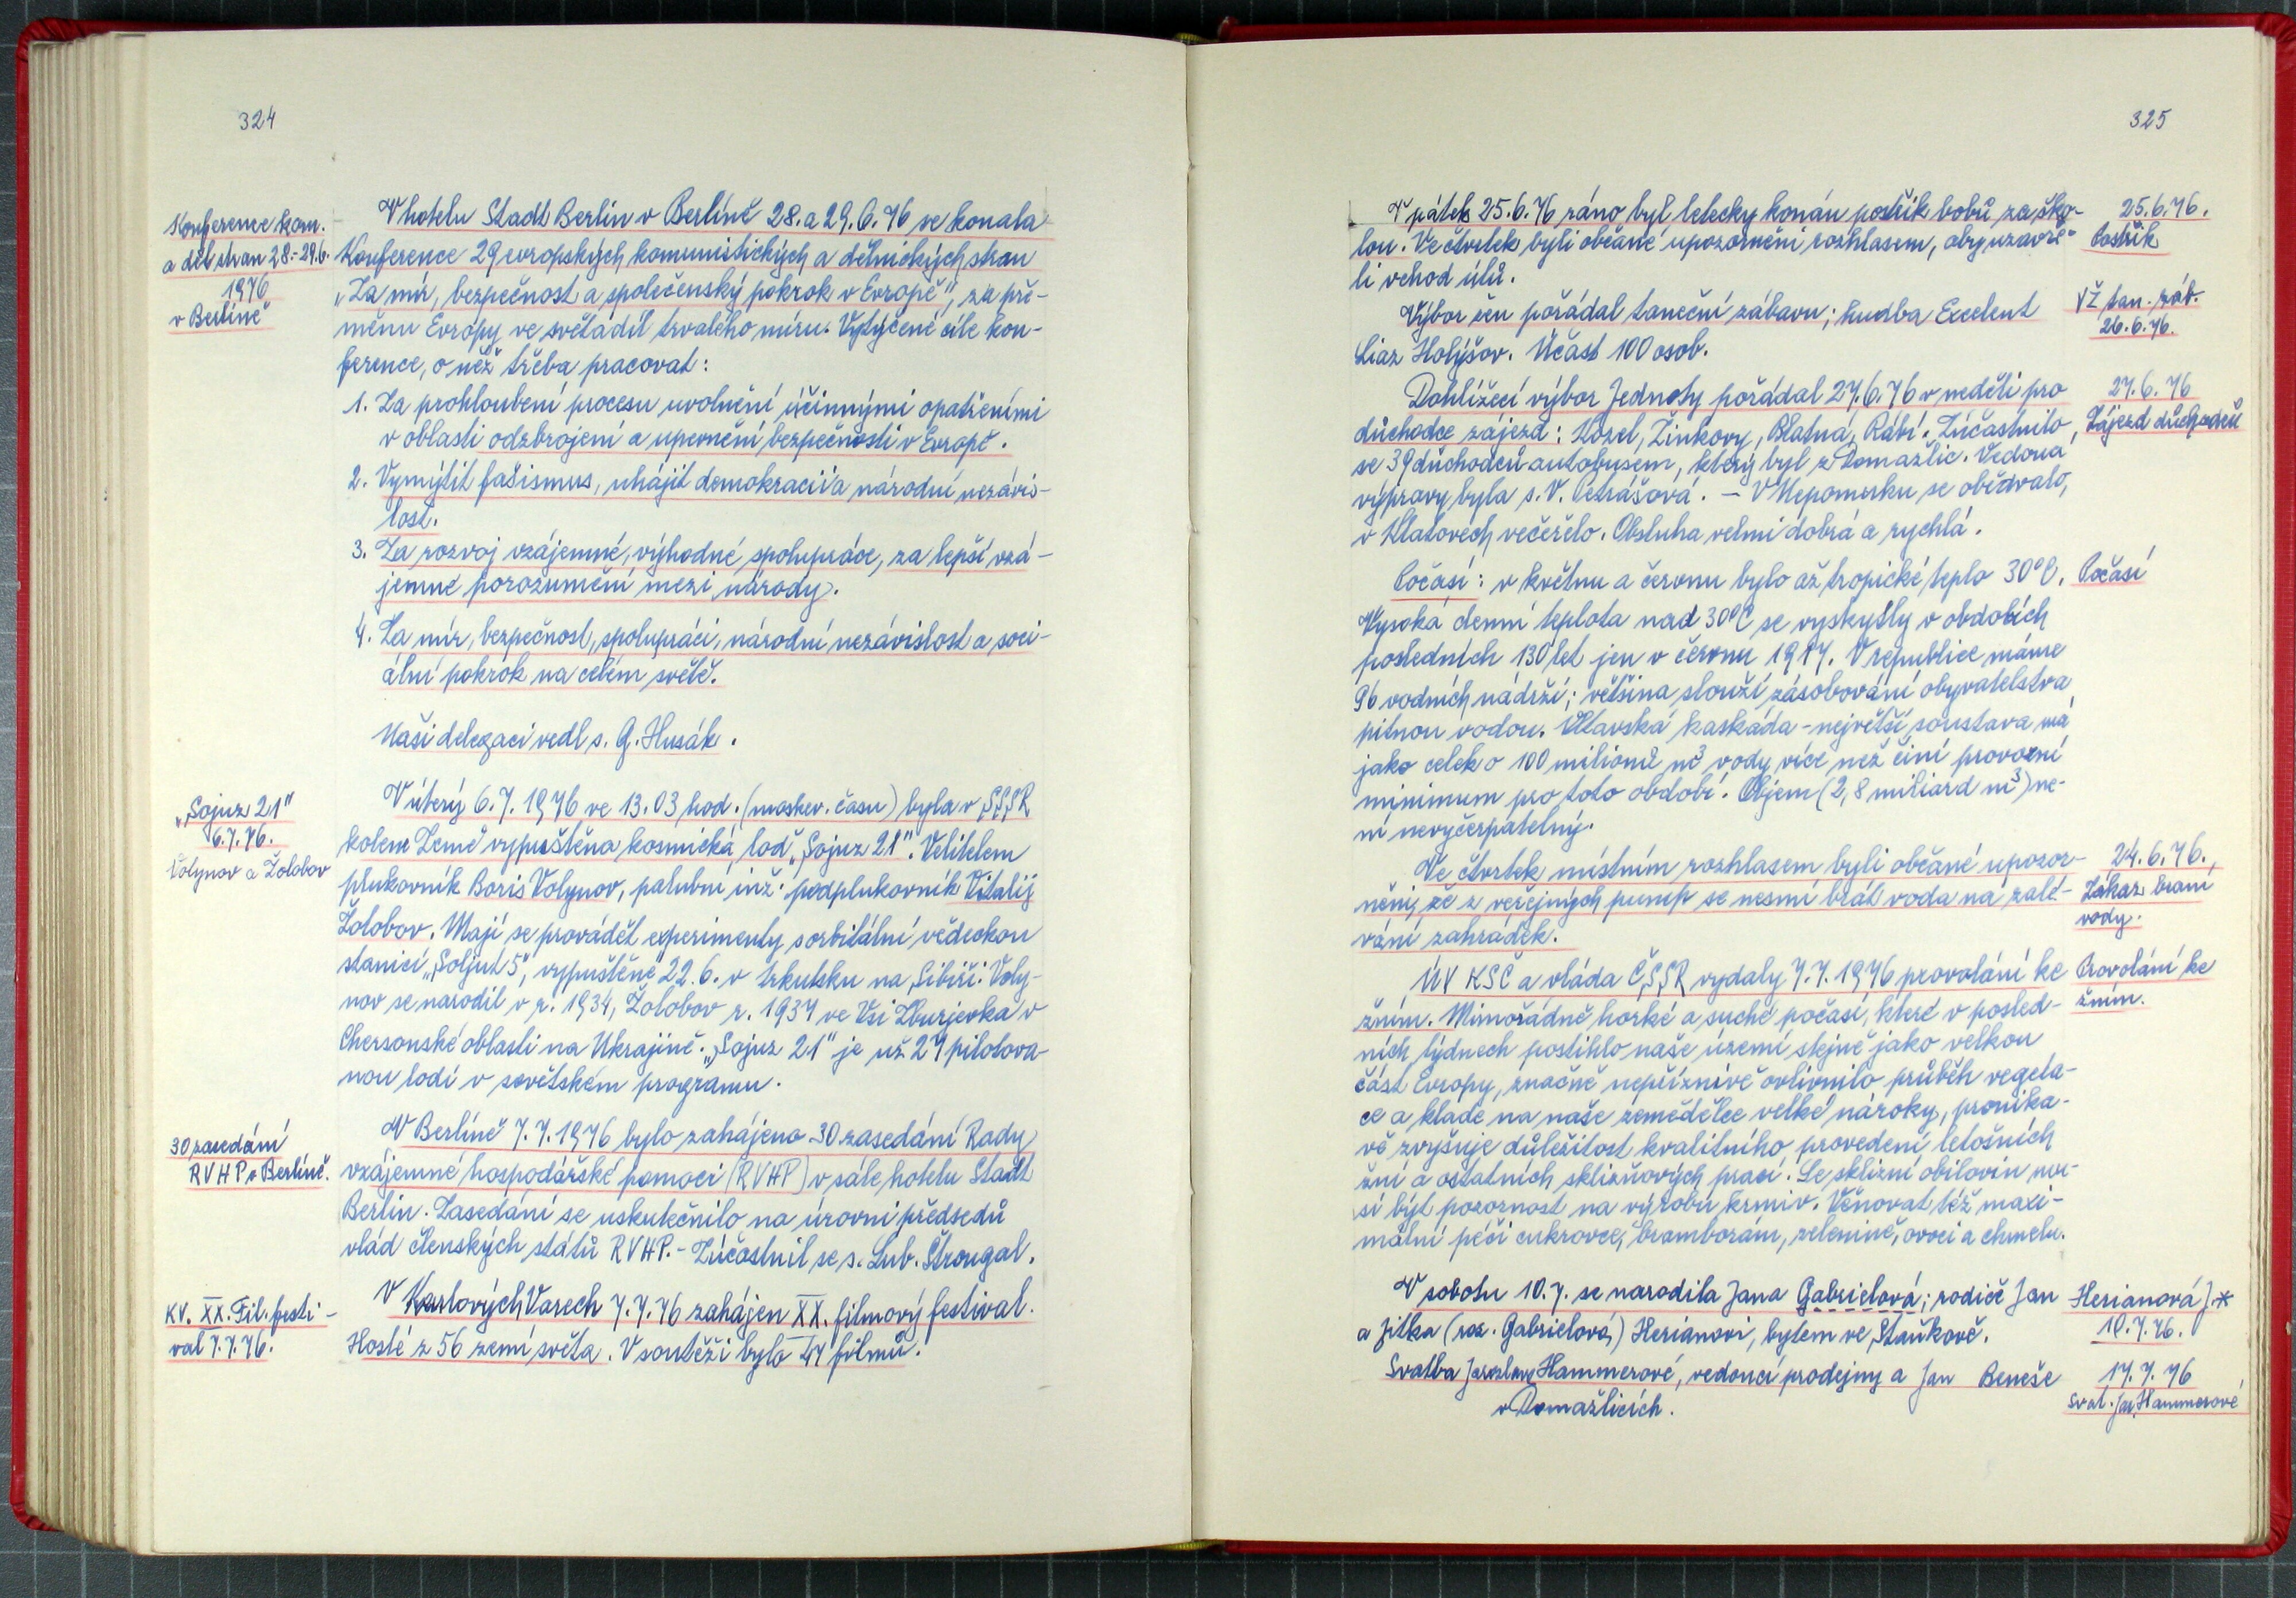 324
Konference kom.
a děl. stran 28.-29.6.
1976
v Berlíně
V hotelu Stadt Berlin v Berlíně 28. a 29.6.76 se konala
Konference 29 evropských komunistických a dělnických stran
„Za mír, bezpečnost a společenský pokrok v Evropě“, za pře-
měnu Evropy ve světadíl trvalého míru. Vytýčené cíle kon-
ference, o něž třeba pracovat:
1. Za prohloubení procesu uvolnění účinnými opatřeními
v oblasti odzbrojení a upevnění bezpečnosti v Evropě.
2. Vymýtit fašismus, uhájit demokracii a národní nezávis-
lost.
3. Za rozvoj vzájemné, výhodné spolupráce, za lepší vzá-
jemné porozumění mezi národy.
4. Za mír, bezpečnost, spolupráci, národní nezávislost a soci-
ální pokrok na celém světě.
Naši delegaci vedl s. G. Husák.
„Sojuz 21“
6.7.76.
Volynov a Žolobov
V úterý 6.7.1976 ve 13.03 hod. (moskev. času) byla v SSSR
kolem Země vypuštěna kosmická loď „Sojuz 21“. Velitelem
plukovník Boris Volynov, palubní inž. podplukovník Vitalij
Žolobov. Mají se provádět experimenty s orbitální vědeckou
stanicí „Soljut 5“, vypuštěné 22.6. v Irkutsku na Sibiři. Voly-
nov se narodil v r. 1934, Žolobov r. 1937 ve vsi Zburjevka v
Chersonské oblasti na Ukrajině. „Sojuz 21“ je už 27 pilotova-
nou lodí v sovětském programu.
30 zasedání
RVHP v Berlíně.
V Berlíně 7.7.1976 bylo zahájeno 30 zasedání Rady
vzájemné hospodářské pomoci (RVHP) v sále hotelu Stadt
Berlin. Zasedání se uskutečnilo na úrovni předsedů
vlád členských států RVHP. - Zúčastnil se s. Lub. Štrougal.
KV. XX. Fil. festi-
val 7.7.76.
V Karlových Varech 7.7.76 zahájen XX. filmový festival.
Hosté z 56 zemí světa. V soutěži bylo 47 filmů.
325
V pátek 25.6.76 ráno byl letecky konán postřik bobů za ško-
lou. Ve čtvrtek byli občané upozorněni rozhlasem, aby uzavře-
li vchod úlů.
25.6.76.
Postřik
Výbor žen pořádal taneční zábavu; hudba Excelent
Liaz Holýšov. Účast 100 osob.
VŽ tan. záb.
26.6.76.
Dohlížecí výbor Jednoty pořádal 27.6.76 v neděli pro
důchodce zájezd: Kozel, Žinkovy, Blatná, Rábí. Zúčastnilo
se 39 důchodců autobusem, který byl z Domažlic. Vedoucí
výpravy byla s. V. Petrášová. - V Nepomuku se obědvalo,
v Klatovech večeřelo. Obsluha velmi dobrá a rychlá.
27.6.76
Zájezd důchodců
Počasí: v květnu a červnu bylo až tropické teplo 30°C.
Vysoká denní teplota nad 30°C se vyskytly v obdobích
posledních 130 let jen v červnu 1917. V republice máme
96 vodních nádrží; většina slouží zásobování obyvatelstva
pitnou vodou. Vltavská kaskáda - největší soustava má
jako celek o 100 milionů m³ vody více než činí provozní
minimum pro toto období. Objem (2,8 miliard m³) ne-
ní nevyčerpatelný.
Počasí
Ve čtvrtek místním rozhlasem byli občané upozor-
něni, že z veřejných pump se nesmí brát voda na zalé-
vání zahrádek.
24.6.76.
Zákaz braní
vody.
ÚV KSČ a vláda ČSSR vydaly 7.7.1976 provolání ke
žním. Mimořádně horké a suché počasí, které v posled-
ních týdnech postihlo naše území stejně jako velkou
část Evropy, značně nepříznivě ovlivnilo průběh vegeta-
ce a klade na naše zemědělce velké nároky, pronika-
vě zvyšuje důležitost kvalitního provedení letošních
žní a ostatních sklizňových prací. Se sklizní obilovin mu-
sí být pozornost na výrobu krmiv. Věnovat též maxi-
mální péči cukrovce, bramborám, zelenině, ovoci a chmelu.
Provolání ke
žním.
V sobotu 10.7. se narodila Jana Gabrielová; rodiče Jan
a Jitka (roz. Gabrielová) Herianovi, bytem ve Staňkově.
Herianová J.*
10.7.76.
Svatba Jaroslavy Hammerové, vedoucí prodejny a Jan Beneše
v Domažlicích.
17.7.76
Svat. Jar. Hammerové